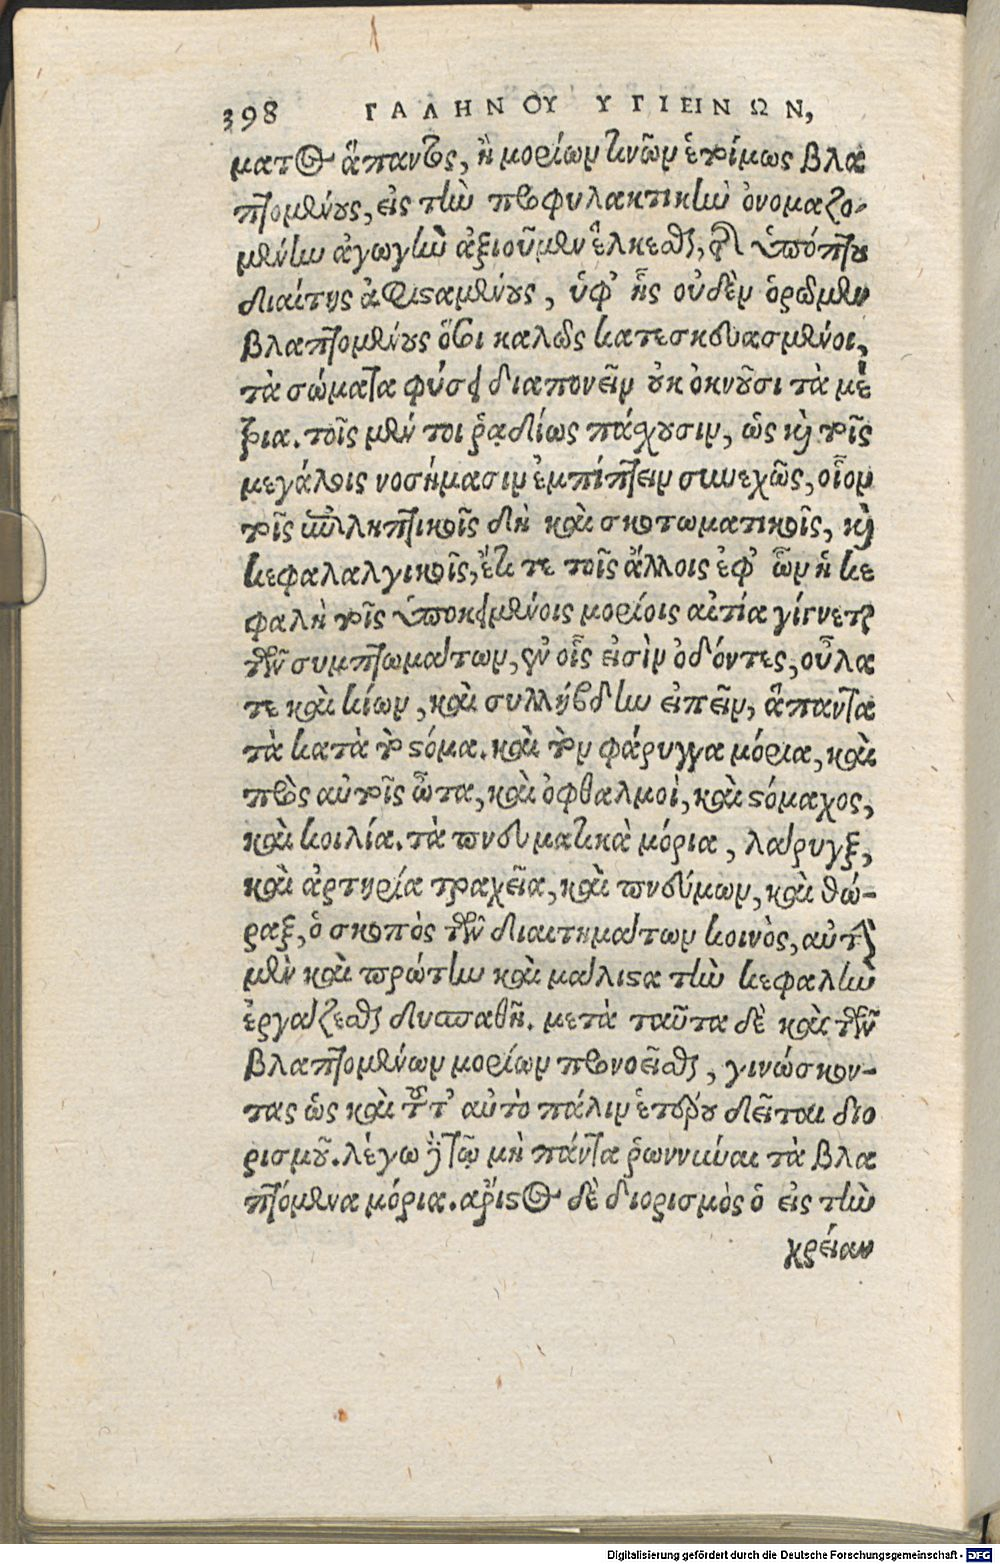 398 ΓΑΛΗΝΟΥ ΥΓΙΕΙΝΩΝ,
ματος ἅπαντος, ἢ μορίων τινῶν ἑτοίμως βλα
πτομένους, εἰς τὴν προφυλακτικὴν ὀνομαζο-
μένην ἀγωγὴν ἀξιοῦμεν ἕλκεσθαι, τῆς ὑπόπτου
διαίτης ἀποστησαμένους, ὑφ' ἧς οὐδὲν ὁρῶμεν
βλαπτομένους ὅσοι καλῶς κατεσκευασμένοι,
τὰ σώματα φύσει διαπονεῖν οὐκ ὀκνοῦσι τὰ μέ
τρια. τοῖς μέν τοι ῥᾳδίως πάσχουσιν, ὡς καὶ τοῖς
μεγάλοις νοσήμασιν ἐμπίπτειν συνεχῶς, οἷον
τοῖς ἐπιληπτικοῖς δὴ καὶ σκοτωματικοῖς, καὶ
κεφαλαλγικοῖς, ἔτι τε τοῖς ἄλλοις ἐφ' ὧν ἡ κε
φαλὴ τοῖς ὑποκειμένοις μορίοις αἰτία γίγνεται
τῶν συμπτωμάτων, ἐν οἷς εἰσὶν ὀδόντες, οὖλα
τε καὶ κίων, καὶ συλλήβδην εἰπεῖν, ἅπαντα
τὰ κατὰ τὸ στόμα. καὶ τὸν φάρυγγα μόρια, καὶ
πρὸς αὐτοῖς ὦτα, καὶ ὀφθαλμοὶ, καὶ στόμαχος,
καὶ κοιλία. τὰ πνευματικὰ μόρια, λάρυγξ,
καὶ ἀρτηρία τραχεῖα, καὶ πνεύμων, καὶ θώ-
ραξ, ὁ σκοπὸς τῶν διαιτημάτων κοινὸς, αὐτὴν
μὲν καὶ πρώτην καὶ μάλιστα τὴν κεφαλὴν
ἐργάζεσθαι δυσπαθῆ. μετὰ ταῦτα δὲ καὶ τῶν
βλαπτομένων μορίων προνοεῖσθαι, γινώσκον-
τας ὡς καὶ τοῦτ' αὐτὸ πάλιν ἑτέρου δεῖται διο
ρισμοῦ. λέγω δὲ τῷ μὴ πάντα ῥωννύναι τὰ βλα
πτόμενα μόρια. ἄριστος δὲ διορισμὸς ὁ εἰς τὴν
χρείαν
Digitalisierung gefördert durch die Deutsche Forschungsgemeinschaft - DFG